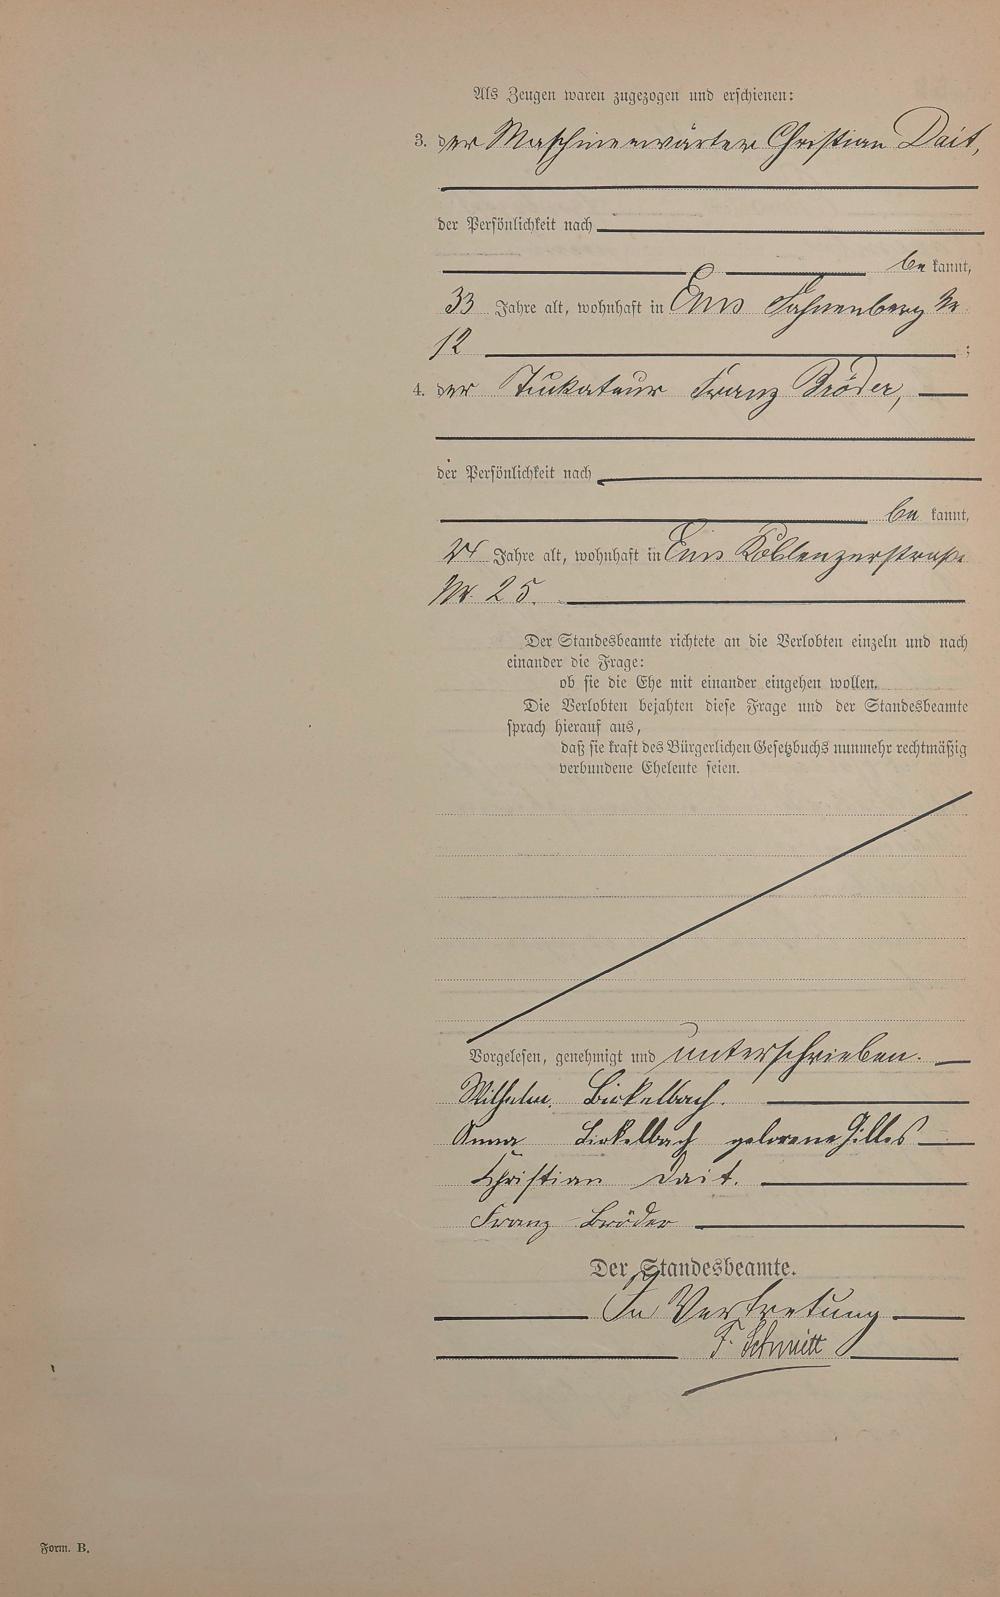 Als Zeugen waren zugezogen und erschienen:
3. der Maschinenwärter Christian Dait,
der Persönlichkeit nach
be kannt,
33 Jahre alt, wohnhaft in Ems Fahnenberg Nr.
12 ;
4. der Stukateur Franz Bröder,
der Persönlichkeit nach
be kannt,
24 Jahre alt, wohnhaft in Ems Koblenzerstraße
Nr. 25.
Der Standesbeamte richtete an die Verlobten einzeln und nach
einander die Frage:
ob sie die Ehe mit einander eingehen wollen.
Die Verlobten bejahten diese Frage und der Standesbeamte
sprach hierauf aus,
daß sie kraft des Bürgerlichen Gesetzbuchs nunmehr rechtmäßig
verbundene Eheleute seien.
Vorgelesen, genehmigt und unterschrieben.
Wilhelm Birkelbach.
Anna Birkelbach geborene Gilles
Christian Dait.
Franz Bröder
Der Standesbeamte.
In Vertretung
F. Schmitt
Form. B.